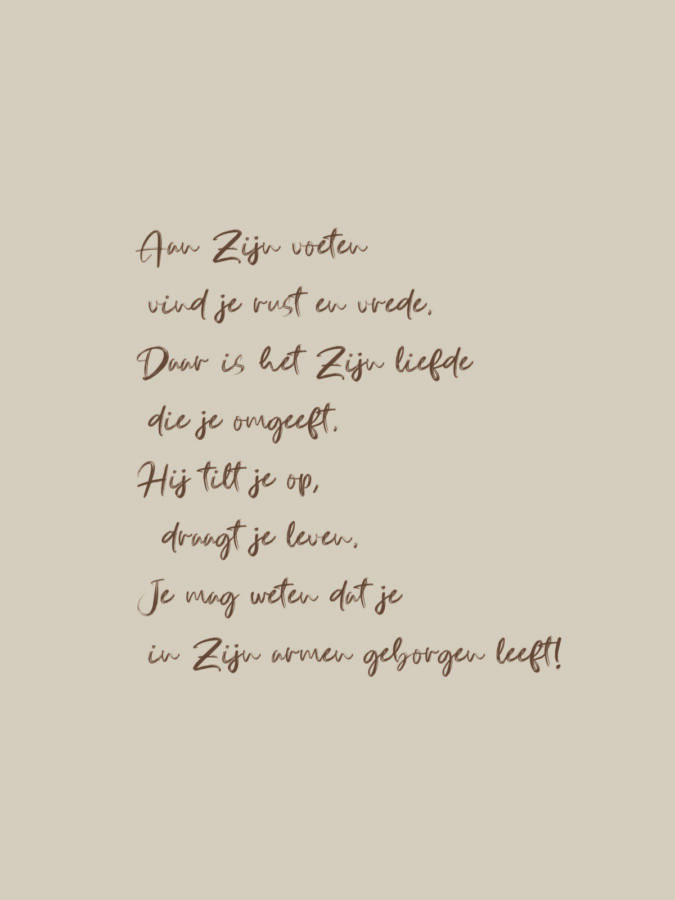 Aan Zijn voeten
vind je rust en vrede.
Daar is het Zijn liefde
die je omgeeft.
Hij tilt je op,
draagt je leven.
Je mag weten dat je
in Zijn armen geborgen leeft!